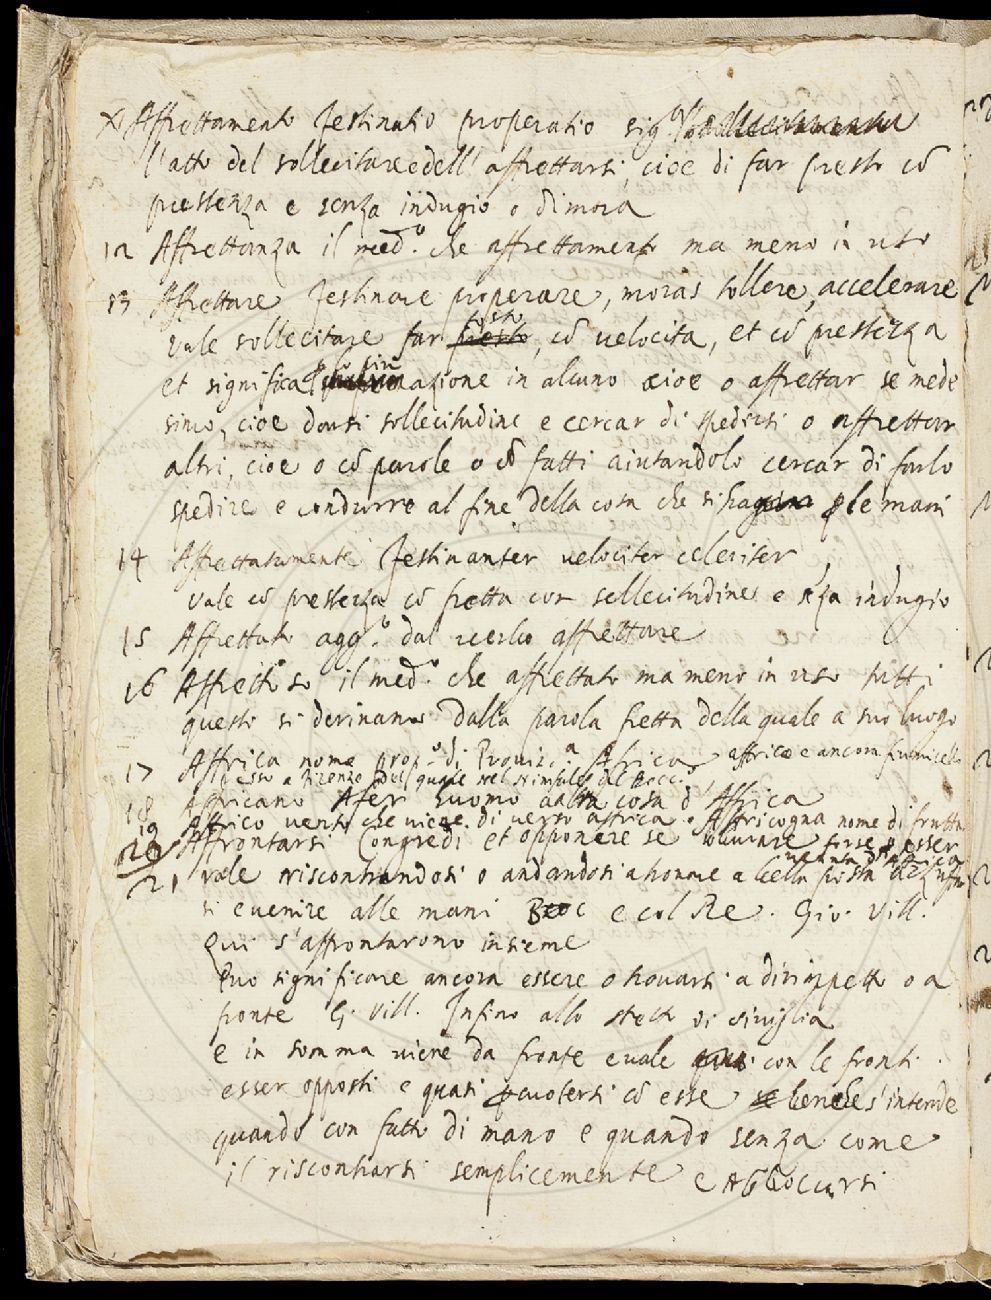 Affrettamento festinatio properatio sig.ca
l'atto del sollecitare e dell'affrettarsi, cioe di far presto cō
prestezza e senza indugio o dimora
12 Affrettanza il med.o che affrettamento ma meno in uso
13 Affrettare festinare properare, moras tollere, accelerare
vale sollecitare far tosto, cō velocita, et cō prestezza
et significa azione in alcuno cioe o affrettar se mede
simo, cioe darsi sollecitudine e cercar di spedirsi o affrettar
altri, cioe o cō parole o cō fatti aiutandolo cercar di farlo
spedire e condurre al fine della cosa che si ha le mani
14 Affrettatamente festinanter velociter celeriter
vale cō prestezza cō fretta con sollecitudine e sēza indugio
15 Affrettato agg.o dal verbo affrettare
16 Affrettoso il med.o che affrettato ma meno in uso tutti
questi si derivano dalla parola fretta della quale a suo luogo
17 Affrica nome prop.o di Provinc.a Africa affrico e ancora fiumicello
presso a Firenze del quale nel Ninfale del Bocc.o
18 Affricano Afer huomo o altra cosa d'Affrica
19 Affrico vento che viene di verso affrica. Affricogna nome di frutta
20 Affrontarsi Congredi et opponere se forse esser
venuta d'Affrica
21 vale riscontrandosi o andandosi a trovare a bella posta
si e venire alle mani Bocc e col Re. Gio. Vill.
Qui s'affrontarono insieme
Puo significare ancora essere o trovarsi a dirimpetto o a
fronte G. Vill. Infino allo stretto di siviglia
e in somma viene da fronte e vale con le fronti
esser opposti e quasi percuotersi cō esse benche s'intende
quando con fatto di mano e quando senza come
il riscontrarsi semplicemente e Abboccarsi